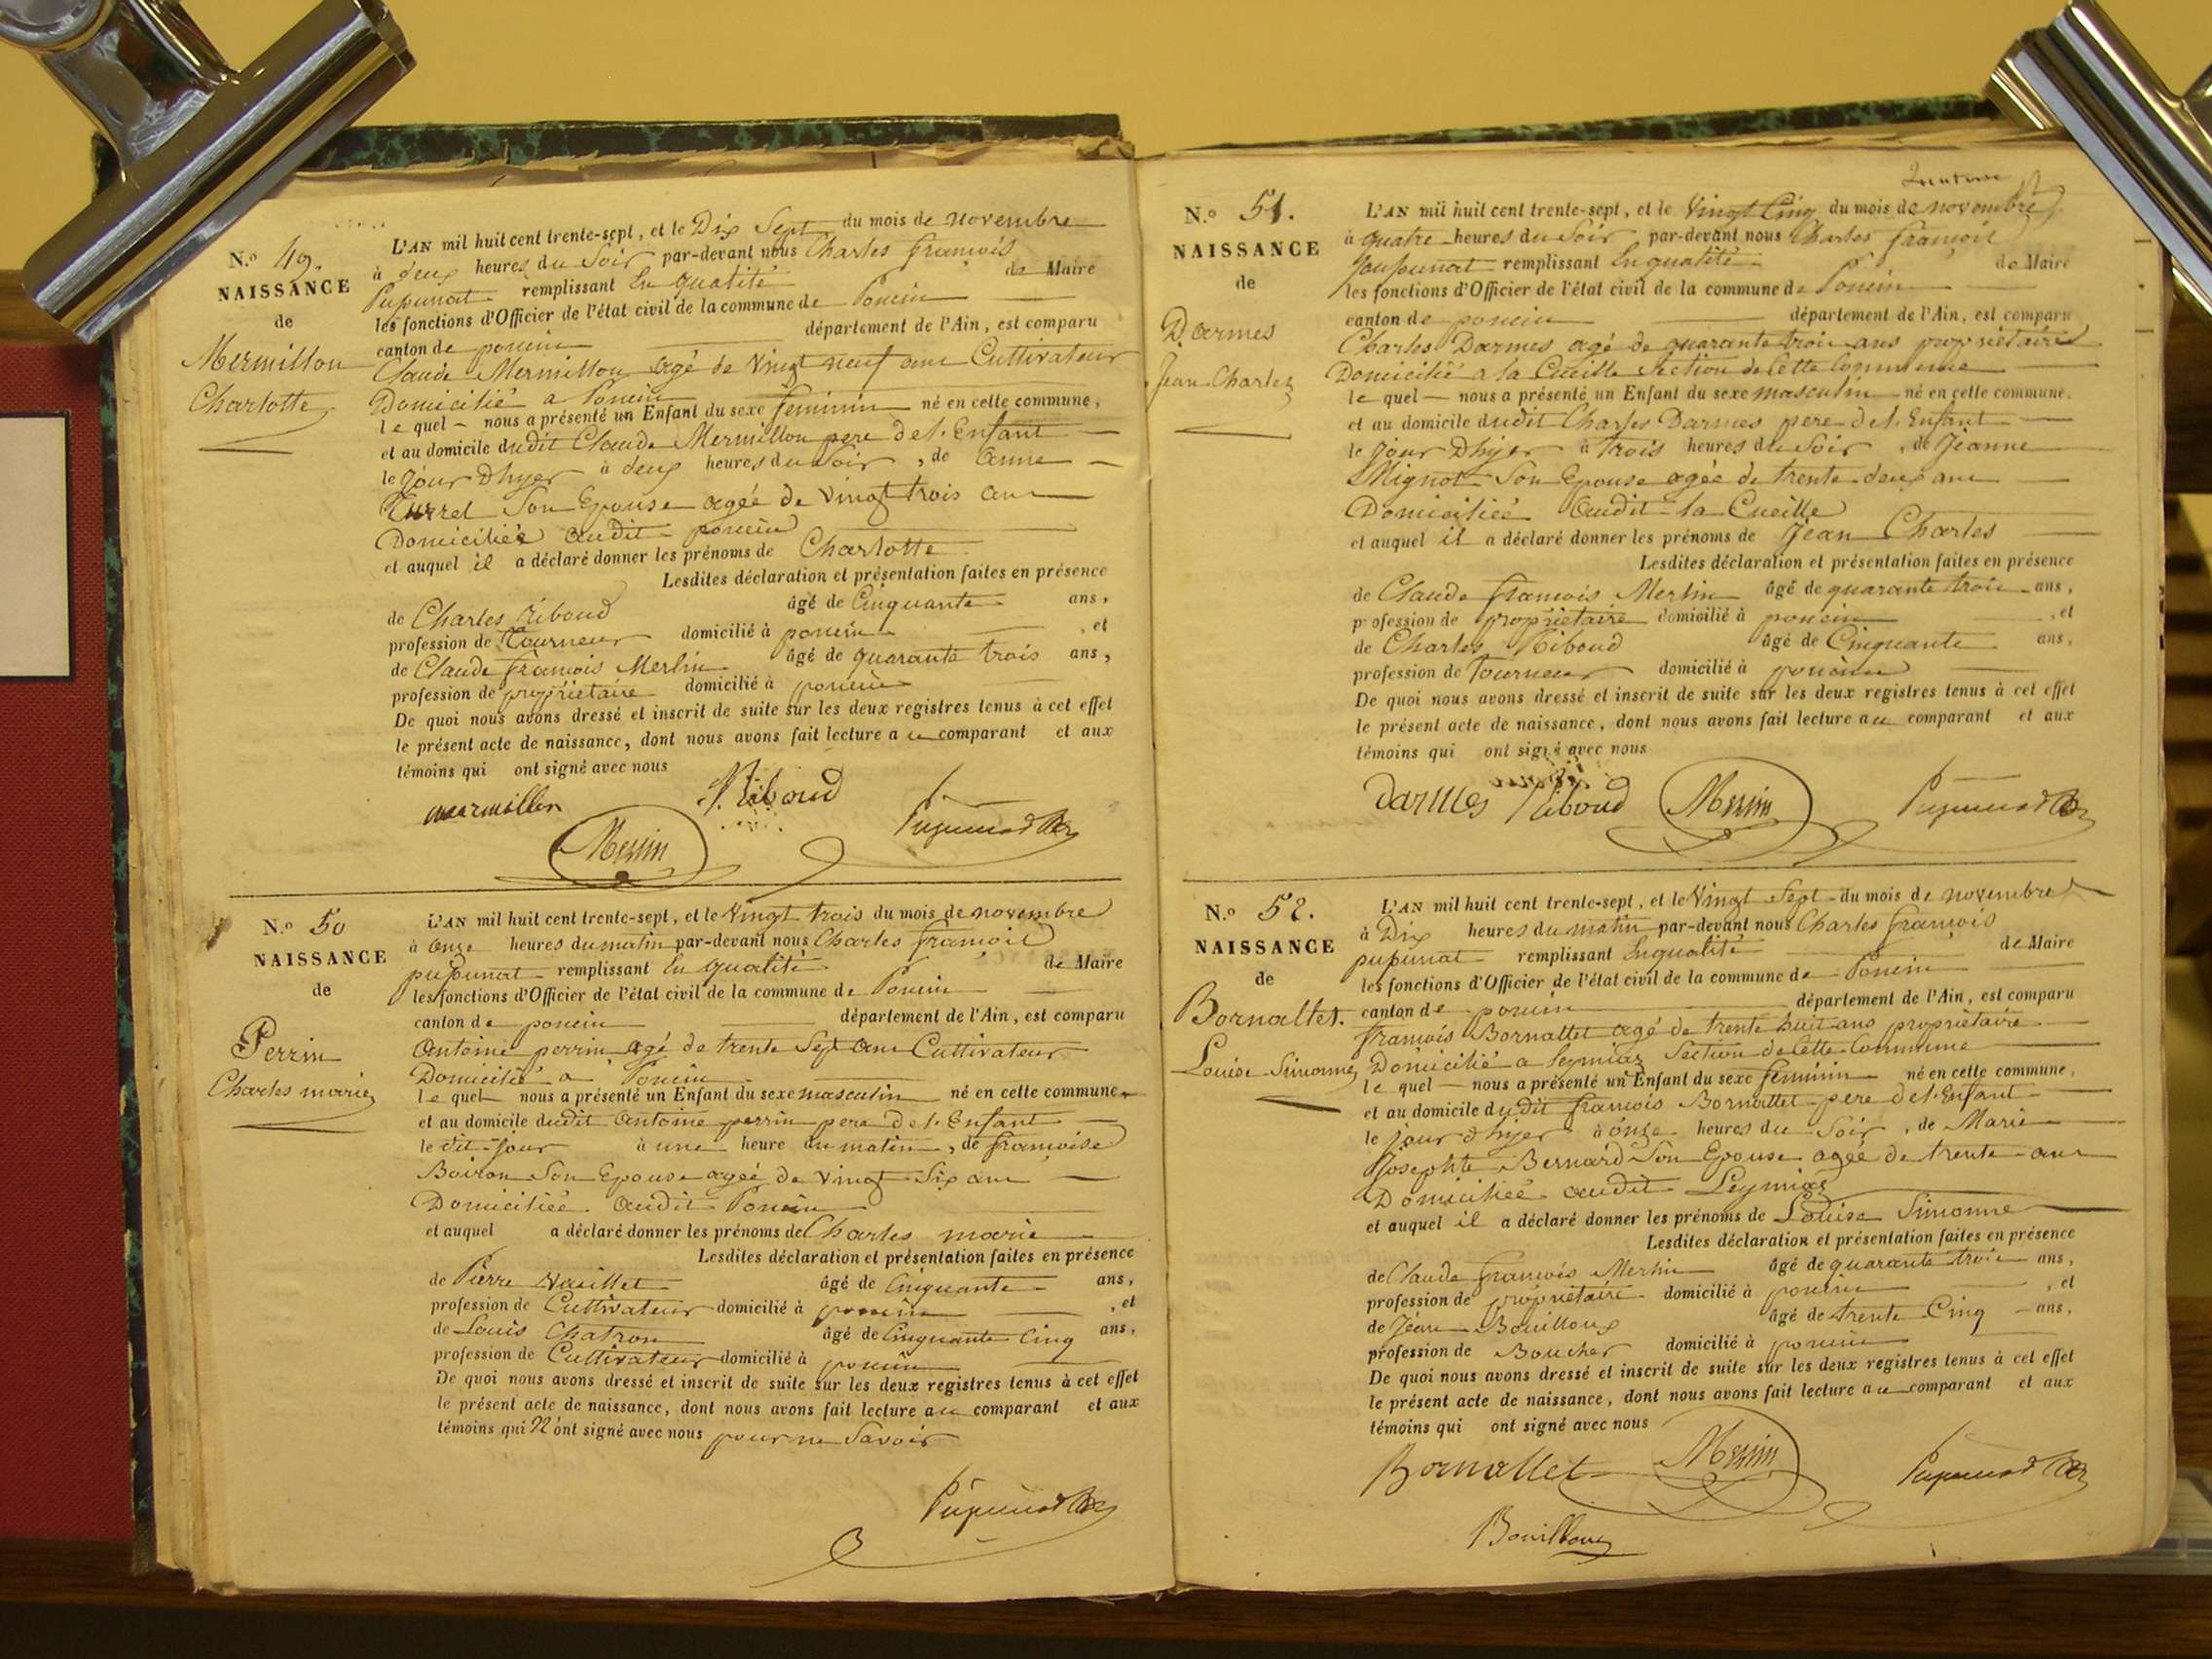 N.o 49.
NAISSANCE
de
Mermillon
Charlotte
L'AN mil huit cent trente-sept, et le Dix Sept du mois de novembre
à deux heures du Soir par-devant nous Charles françois
Pupunat remplissant En qualité de Maire
les fonctions d'Officier de l'état civil de la commune de Poncin
canton de poncin département de l'Ain, est comparu
Claude Mermillon agé de Vingt neuf ans Cultivateur
Domicilié a Poncin
le quel nous a présenté un Enfant du sexe feminin né en cette commune,
et au domicile dudit Claude Mermillon pere de l'Enfant
le jour Dhyer à deux heures du Soir, de Anne
Son Epouse agée de Vingt trois ans
Domiciliée audit poncin
et auquel il a déclaré donner les prénoms de Charlotte
Lesdites déclaration et présentation faites en présence
de Charles Riboud âgé de Cinquante ans,
profession de Tourneur domicilié à poncin, et
de Claude françois Merlin âgé de quarante trois ans,
profession de propriétaire domicilié à poncin
De quoi nous avons dressé et inscrit de suite sur les deux registres tenus à cet effet
le présent acte de naissance, dont nous avons fait lecture au comparant et aux
témoins qui ont signé avec nous
mermillon Riboud
Merlin Pupunat
N.o 50
NAISSANCE
de
Perrin
Charles marie
L'AN mil huit cent trente-sept, et le Vingt trois du mois de novembre
à onze heures du matin par-devant nous Charles françois
pupunat remplissant En qualité de Maire
les fonctions d'Officier de l'état civil de la commune de Poncin
canton de poncin département de l'Ain, est comparu
Antoine perrin agé de trente Sept ans Cultivateur
Domicilié a Poncin
le quel nous a présenté un Enfant du sexe masculin né en cette commune
et au domicile dudit Antoine perrin pere de l'Enfant
le dit jour à une heure du matin, de françoise
Boiron Son Epouse agée de Vingt Six ans
Domiciliée audit Poncin
et auquel a déclaré donner les prénoms de Charles marie
Lesdites déclaration et présentation faites en présence
de Pierre Vuillet âgé de Cinquante ans,
profession de Cultivateur domicilié à poncin, et
de Louis Chatron âgé de Cinquante Cinq ans,
profession de Cultivateur domicilié à poncin
De quoi nous avons dressé et inscrit de suite sur les deux registres tenus à cet effet
le présent acte de naissance, dont nous avons fait lecture au comparant et aux
témoins qui N'ont signé avec nous pour ne Savoir
Pupunat
N.o 51.
NAISSANCE
de
Darmes
Jean Charles
L'AN mil huit cent trente-sept, et le Vingt Cinq du mois de novembre
à quatre heures du Soir par-devant nous Charles françois
pupunat remplissant En qualité de Maire
les fonctions d'Officier de l'état civil de la commune de Poncin
canton de poncin département de l'Ain, est comparu
Charles Darmes agé de quarante trois ans propriétaire
Domicilié a la Cueille Section de Cette Commune
le quel nous a présenté un Enfant du sexe masculin né en cette commune,
et au domicile dudit Charles Darmes pere de l'Enfant
le jour Dhyer à trois heures du Soir, de Jeanne
Mignot Son Epouse agée de trente deux ans
Domiciliée audit la Cueille
et auquel il a déclaré donner les prénoms de Jean Charles
Lesdites déclaration et présentation faites en présence
de Claude françois Merlin âgé de quarante trois ans,
profession de propriétaire domicilié à poncin, et
de Charles Riboud âgé de Cinquante ans,
profession de Tourneur domicilié à poncin
De quoi nous avons dressé et inscrit de suite sur les deux registres tenus à cet effet
le présent acte de naissance, dont nous avons fait lecture au comparant et aux
témoins qui ont signé avec nous
Darmes Riboud Merlin Pupunat
N.o 52.
NAISSANCE
de
Bornallet.
Louise Simonne
L'AN mil huit cent trente-sept, et le Vingt Sept du mois de novembre
à Dix heures du matin par-devant nous Charles françois
pupunat remplissant En qualité de Maire
les fonctions d'Officier de l'état civil de la commune de Poncin
canton de poncin département de l'Ain, est comparu
françois Bornallet agé de trente huit ans propriétaire
Domicilié a Leymiaz Section de Cette Commune
le quel nous a présenté un Enfant du sexe feminin né en cette commune,
et au domicile dudit françois Bornallet pere de l'Enfant
le jour dhyer à onze heures du Soir, de Marie
Josephte Bernard Son Epouse agée de trente ans
Domiciliée audit Leymiaz
et auquel il a déclaré donner les prénoms de Louise Simonne
Lesdites déclaration et présentation faites en présence
de Claude françois Merlin âgé de quarante trois ans,
profession de propriétaire domicilié à poncin, et
de Jean Bouilloux âgé de trente Cinq ans,
profession de Boucher domicilié à poncin
De quoi nous avons dressé et inscrit de suite sur les deux registres tenus à cet effet
le présent acte de naissance, dont nous avons fait lecture au comparant et aux
témoins qui ont signé avec nous
Bornallet Merlin Pupunat
Bouilloux